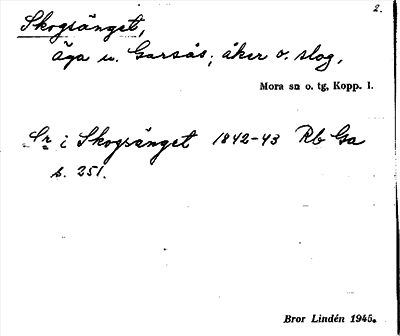 2.
Skogsänget,
äga u. Garsås; åker o. slog,
Mora sn o. tg, Kopp. l.
Sr i Skogsänget 1842-43 Rb Ga
s. 251.
Bror Lindén 1945.